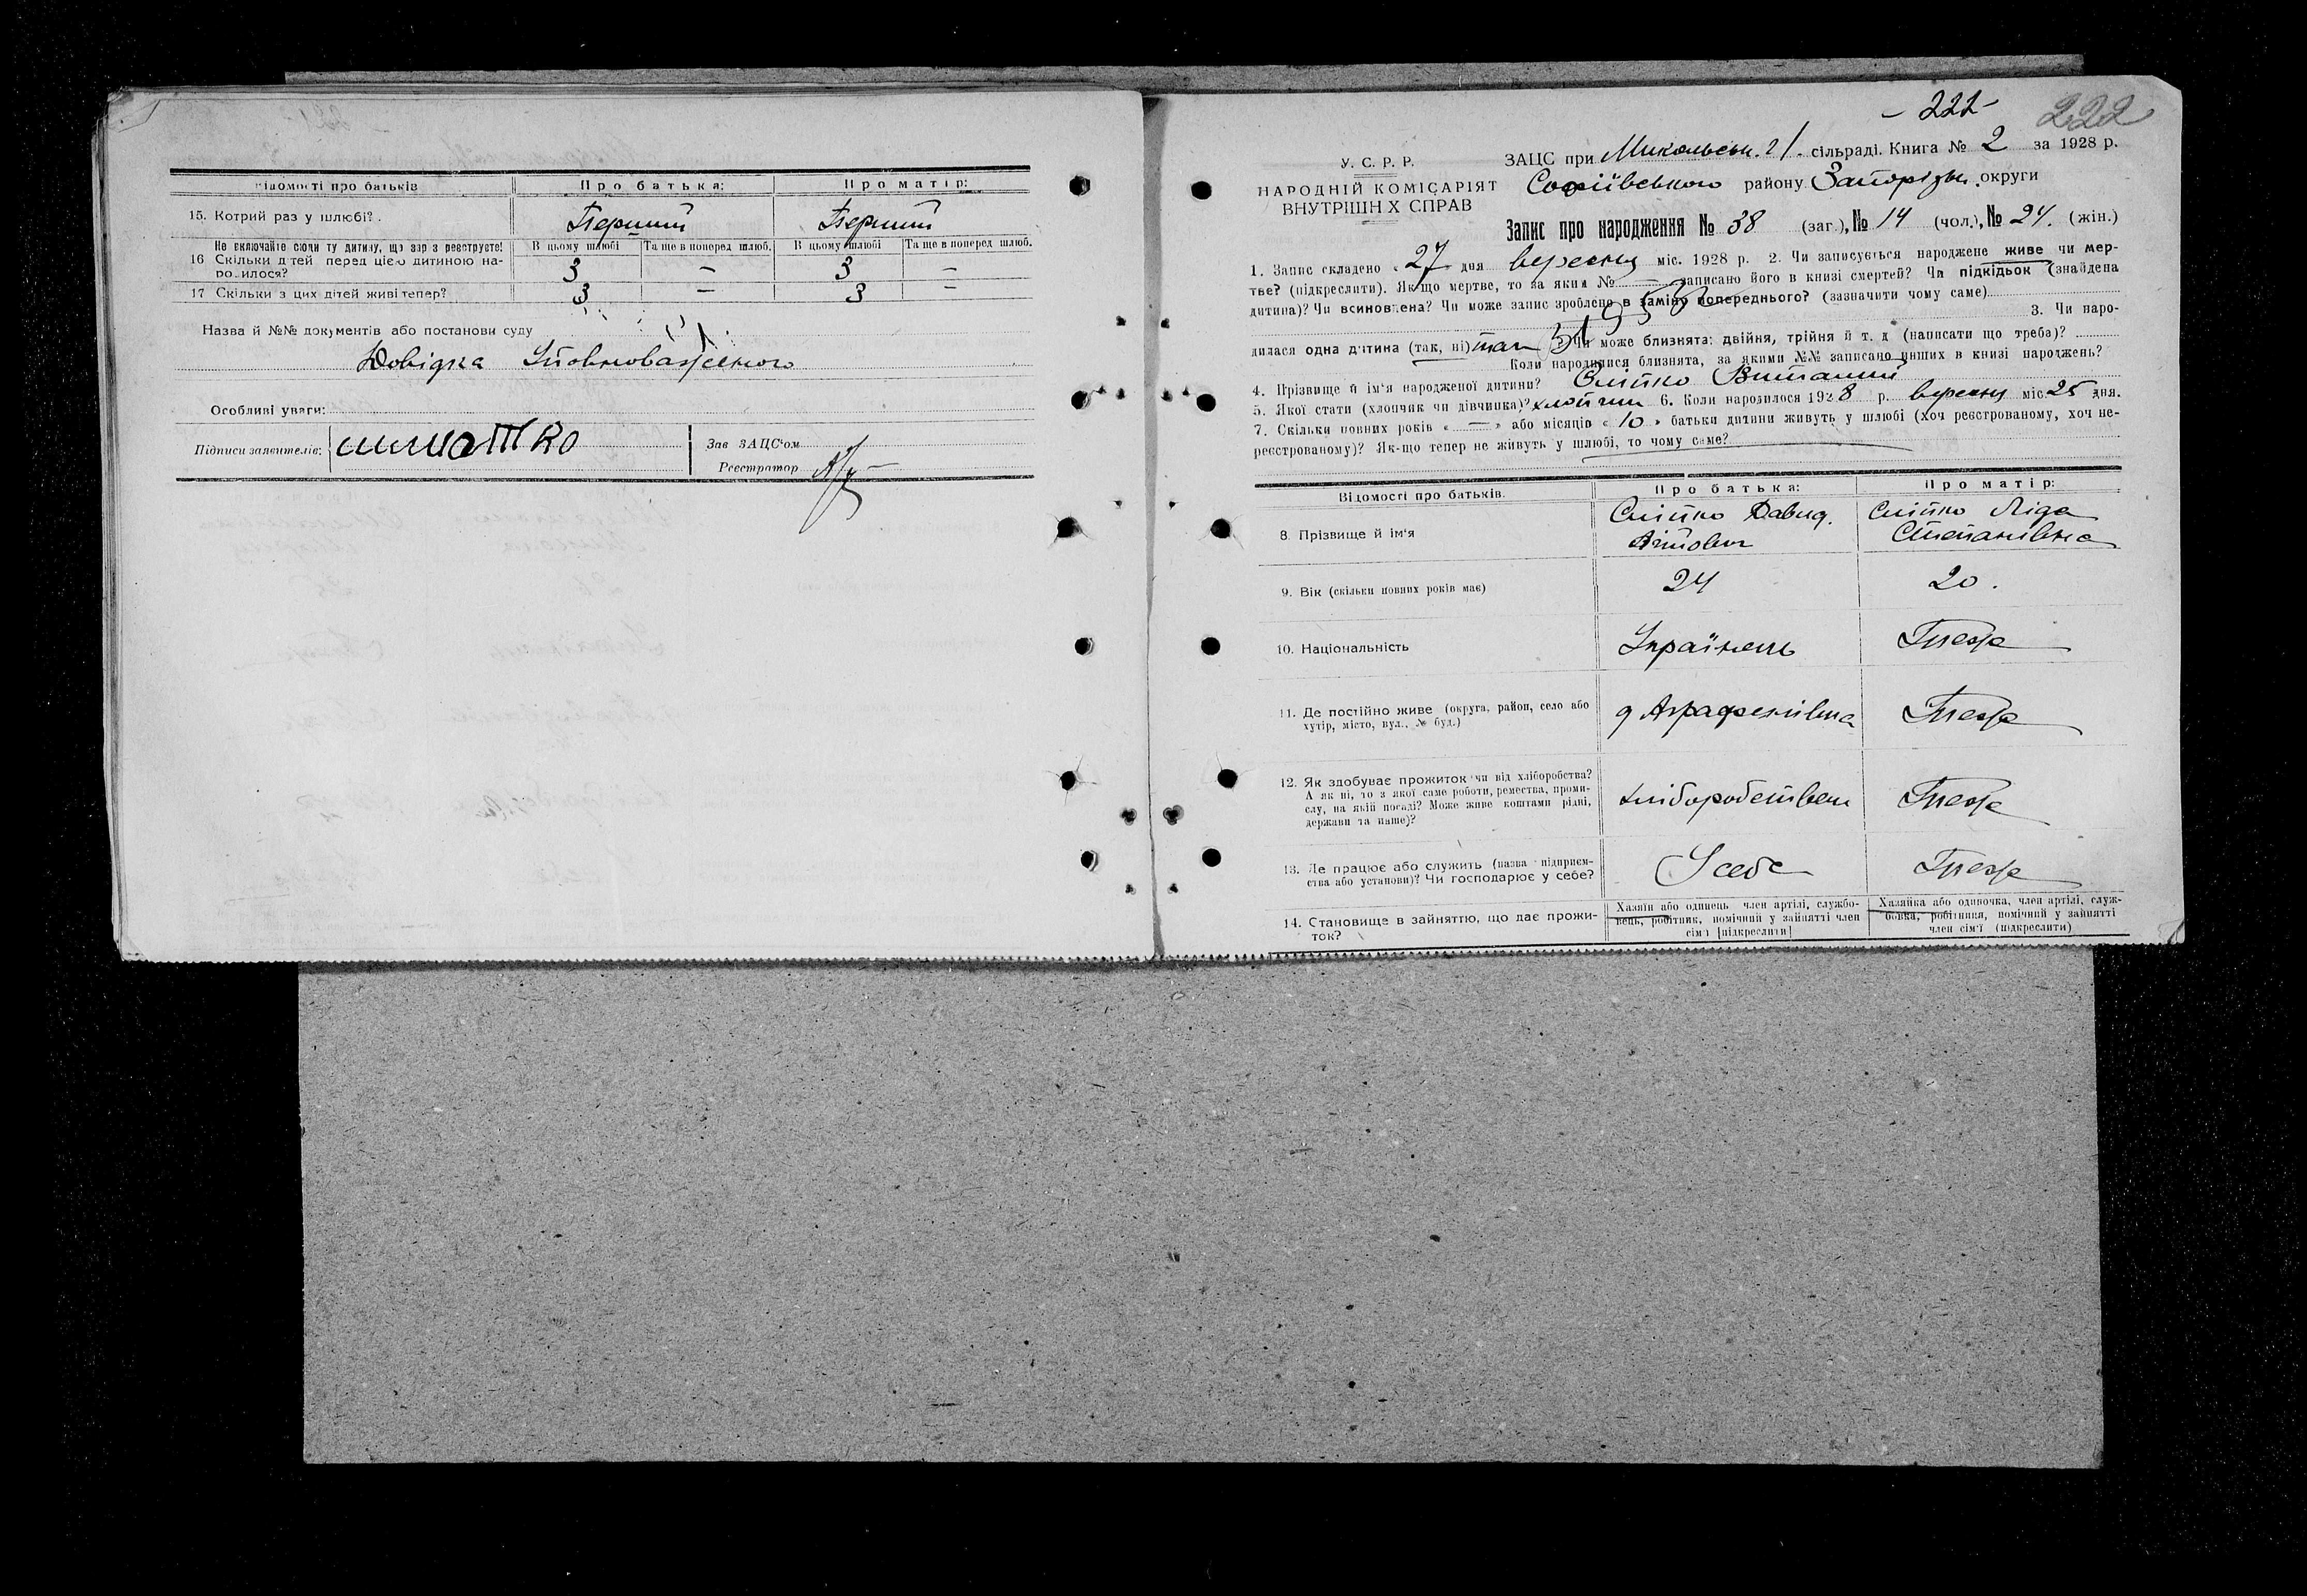 Відомості про батьків
Про батька:
Про матір:
15. Котрий раз у шлюбі?
Перший
Перший
Не включайте сюди ту дитину, що зараз реєструєте!
В цьому шлюбі
Та ще в поперед шлюб.
В цьому шлюбі
Та ще в поперед шлюб.
16 Скільки дітей перед цією дитиною на-
родилося?
3
—
3
—
17 Скільки з цих дітей живі тепер?
3
—
3
—
Назва й №№ документів або постанови суду
Довідка Уповноваженого
Особливі уваги:
Підписи заявителів:
Зав ЗАЦС'ом
Реєстратор
- 222 -
222
У. С. Р. Р.
НАРОДНІЙ КОМІСАРІЯТ
ВНУТРІШНІХ СПРАВ
ЗАЦС при Микольськ. 2/1. сільраді. Книга № 2 за 1928 р.
Софіївського району Запорізьк. округи
Запис про народження № 38 (заг.), № 14 (чол.), № 24. (жін.)
1. Запис складено « 27 дня вересня міс. 1928 р. 2. Чи записується народжене живе чи мер-
тве? (підкреслити). Якщо мертве, то за яким № — записано його в книзі смертей? Чи підкідьок (знайдена
дитина)? Чи всиновлена? Чи може запис зроблено в заміну попереднього? (зазначити чому саме)
3. Чи наро-
дилася одна дитина (так, ні) так Чи може близнята: двійня, трійня й т. д (написати що треба)?
Коли народилися близнята, за якими №№ записано инших в книзі народжень?
4. Прізвище й ім'я народженої дитини? Сліпко Виталий
5. Якої статі (хлопчик чи дівчинка)? хлопчик 6. Коли народилося 1928 р. вересня міс 25 дня.
7. Скільки повних років « — » або місяців « 10 » батьки дитини живуть у шлюбі (хоч реєстрованому, хоч не-
реєстрованому)? Як-що тепер не живуть у шлюбі, то чому саме?
Відомості про батьків.
Про батька:
Про матір:
8. Прізвище й ім'я
Сліпко Давид.
Сліпко Ліда
Степанівна
9. Вік (скільки повних років має)
24
20.
10. Національність
Українець
Теж
11. Де постійно живе (округа, район, село або
хутір, місто, вул., № буд.)
д Аграфенівка
Теж
12. Як здобуває прожиток чи від хліборобства?
А як ні, то з якої саме роботи, ремества, проми-
слу, на якій посаді? Може живе коштами рідні,
держави та инше)?
хліборобством
Теж
13. Де працює або служить (назва підприєм-
ства або установи)? Чи господарює у себе?
У себе
Теж
14. Становище в зайняттю, що дає прожи-
ток?
Хазяїн або одинець член артілі, службо-
вець, робітник, помічний у зайнятті член
сім'ї [підкреслити]
Хазяйка або одиночка, член артілі, служ-
бовка, робітниця, помічний у зайнятті
член сім'ї (підкреслити)